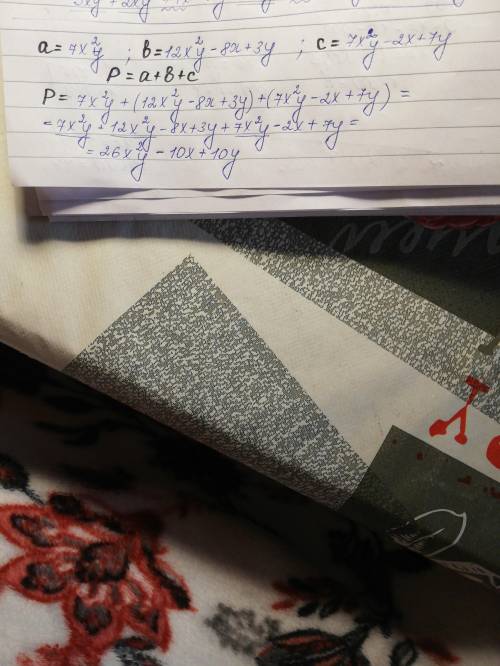 a = 7x²y ; b = 12x²y - 8x + 3y ; c = 7x²y - 2x + 7y
P = a + b + c
P = 7x²y + (12x²y - 8x + 3y) + (7x²y - 2x + 7y) =
= 7x²y + 12x²y - 8x + 3y + 7x²y - 2x + 7y =
= 26x²y - 10x + 10y